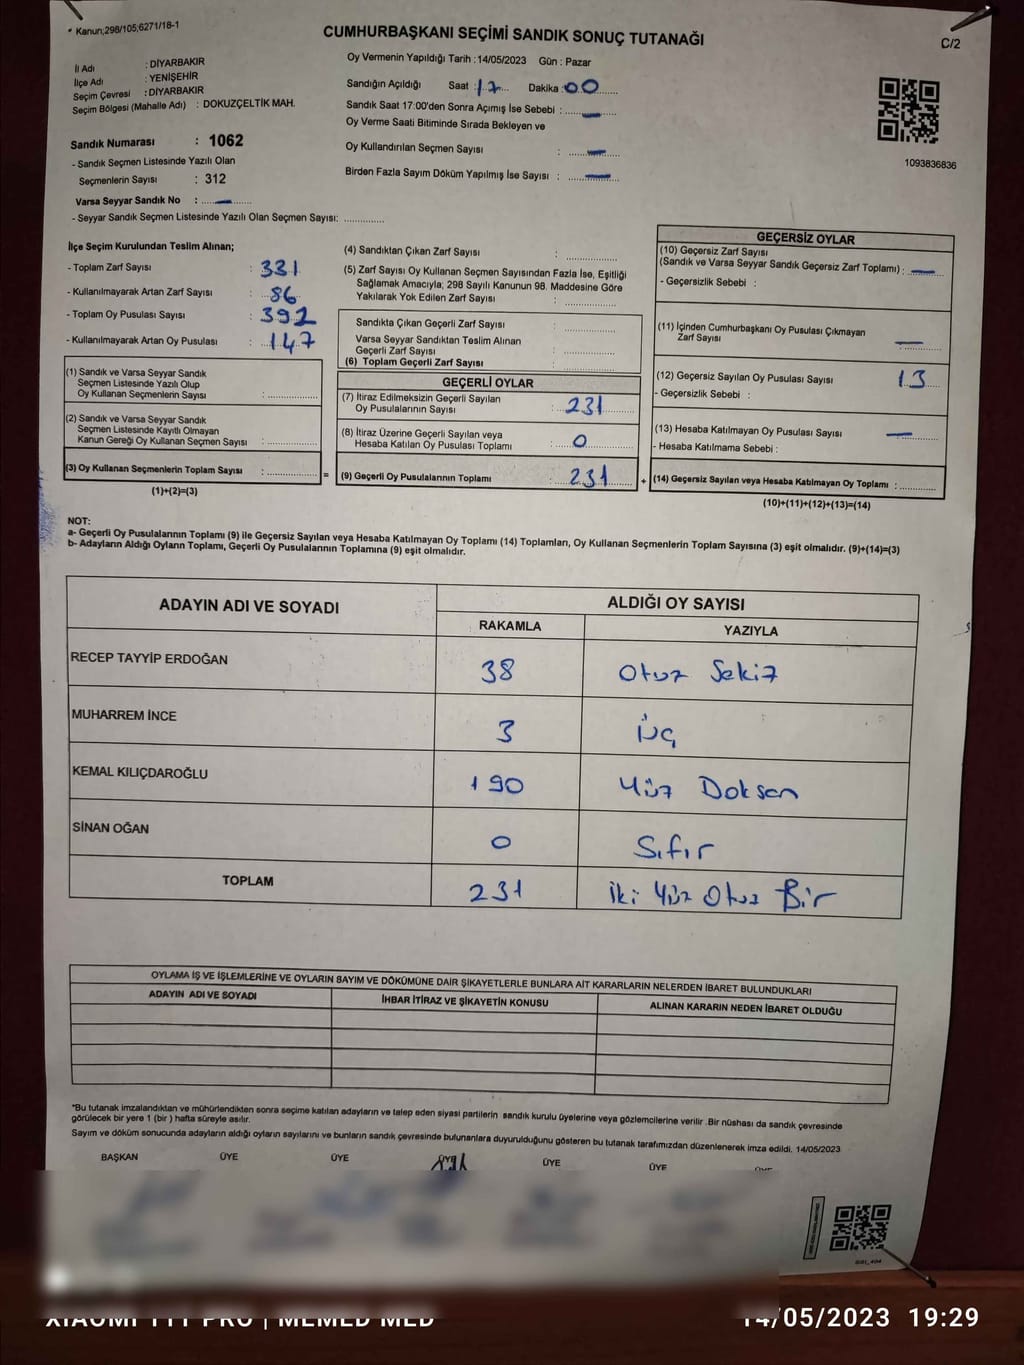 * Kanun;298/105;6271/18-1
CUMHURBAŞKANI SEÇİMİ SANDIK SONUÇ TUTANAĞI
C/2
İl Adı : DİYARBAKIR
İlçe Adı : YENİŞEHİR
Seçim Çevresi : DİYARBAKIR
Seçim Bölgesi (Mahalle Adı) : DOKUZÇELTİK MAH.
Sandık Numarası : 1062
- Sandık Seçmen Listesinde Yazılı Olan
Seçmenlerin Sayısı : 312
Varsa Seyyar Sandık No : —
- Seyyar Sandık Seçmen Listesinde Yazılı Olan Seçmen Sayısı: ..............
Oy Vermenin Yapıldığı Tarih : 14/05/2023 Gün : Pazar
Sandığın Açıldığı Saat : 17 Dakika : 00
Sandık Saat 17:00'den Sonra Açımış İse Sebebi : —
Oy Verme Saati Bitiminde Sırada Bekleyen ve
Oy Kullandırılan Seçmen Sayısı : —
Birden Fazla Sayım Döküm Yapılmış İse Sayısı : —
1093836836
İlçe Seçim Kurulundan Teslim Alınan;
- Toplam Zarf Sayısı : 331
- Kullanılmayarak Artan Zarf Sayısı : 86
- Toplam Oy Pusulası Sayısı : 392
- Kullanılmayarak Artan Oy Pusulası : 147
(1) Sandık ve Varsa Seyyar Sandık
Seçmen Listesinde Yazılı Olup
Oy Kullanan Seçmenlerin Sayısı : ..............
(2) Sandık ve Varsa Seyyar Sandık
Seçmen Listesinde Kayıtlı Olmayan
Kanun Gereği Oy Kullanan Seçmen Sayısı : ..............
(3) Oy Kullanan Seçmenlerin Toplam Sayısı : ..............
(1)+(2)=(3)
(4) Sandıktan Çıkan Zarf Sayısı : ..............
(5) Zarf Sayısı Oy Kullanan Seçmen Sayısından Fazla İse, Eşitliği
Sağlamak Amacıyla; 298 Sayılı Kanunun 98. Maddesine Göre
Yakılarak Yok Edilen Zarf Sayısı : ..............
Sandıkta Çıkan Geçerli Zarf Sayısı : ..............
Varsa Seyyar Sandıktan Teslim Alınan
Geçerli Zarf Sayısı : ..............
(6) Toplam Geçerli Zarf Sayısı
GEÇERLİ OYLAR
(7) İtiraz Edilmeksizin Geçerli Sayılan
Oy Pusulalarının Sayısı : 231
(8) İtiraz Üzerine Geçerli Sayılan veya
Hesaba Katılan Oy Pusulası Toplamı : 0
= (9) Geçerli Oy Pusulalarının Toplamı : 231 +
GEÇERSİZ OYLAR
(10) Geçersiz Zarf Sayısı
(Sandık ve Varsa Seyyar Sandık Geçersiz Zarf Toplamı) : —
- Geçersizlik Sebebi :
(11) İçinden Cumhurbaşkanı Oy Pusulası Çıkmayan
Zarf Sayısı —
(12) Geçersiz Sayılan Oy Pusulası Sayısı 13
- Geçersizlik Sebebi :
(13) Hesaba Katılmayan Oy Pusulası Sayısı : —
- Hesaba Katılmama Sebebi :
(14) Geçersiz Sayılan veya Hesaba Katılmayan Oy Toplamı : ..............
(10)+(11)+(12)+(13)=(14)
NOT:
a- Geçerli Oy Pusulalarının Toplamı (9) ile Geçersiz Sayılan veya Hesaba Katılmayan Oy Toplamı (14) Toplamları, Oy Kullanan Seçmenlerin Toplam Sayısına (3) eşit olmalıdır. (9)+(14)=(3)
b- Adayların Aldığı Oyların Toplamı, Geçerli Oy Pusulalarının Toplamına (9) eşit olmalıdır.
ADAYIN ADI VE SOYADI ALDIĞI OY SAYISI
RAKAMLA YAZIYLA
RECEP TAYYİP ERDOĞAN 38 Otuz Sekiz
MUHARREM İNCE 3 Üç
KEMAL KILIÇDAROĞLU 190 Yüz Doksan
SİNAN OĞAN 0 Sıfır
TOPLAM 231 İki Yüz Otuz Bir
OYLAMA İŞ VE İŞLEMLERİNE VE OYLARIN SAYIM VE DÖKÜMÜNE DAİR ŞİKAYETLERLE BUNLARA AİT KARARLARIN NELERDEN İBARET BULUNDUKLARI
ADAYIN ADI VE SOYADI İHBAR İTİRAZ VE ŞİKAYETİN KONUSU ALINAN KARARIN NEDEN İBARET OLDUĞU
*Bu tutanak imzalandıktan ve mühürlendikten sonra seçime katılan adayların ve talep eden siyasi partilerin sandık kurulu üyelerine veya gözlemcilerine verilir .Bir nüshası da sandık çevresinde
görülecek bir yere 1 (bir ) hafta süreyle asılır.
Sayım ve döküm sonucunda adayların aldığı oyların sayılarını ve bunların sandık çevresinde bulunanlara duyurulduğunu gösteren bu tutanak tarafımızdan düzenlenerek imza edildi. 14/05/2023
BAŞKAN ÜYE ÜYE ÜYE ÜYE ÜYE ÜYE
XIAOMI 11T PRO | MEMED MED
14/05/2023 19:29